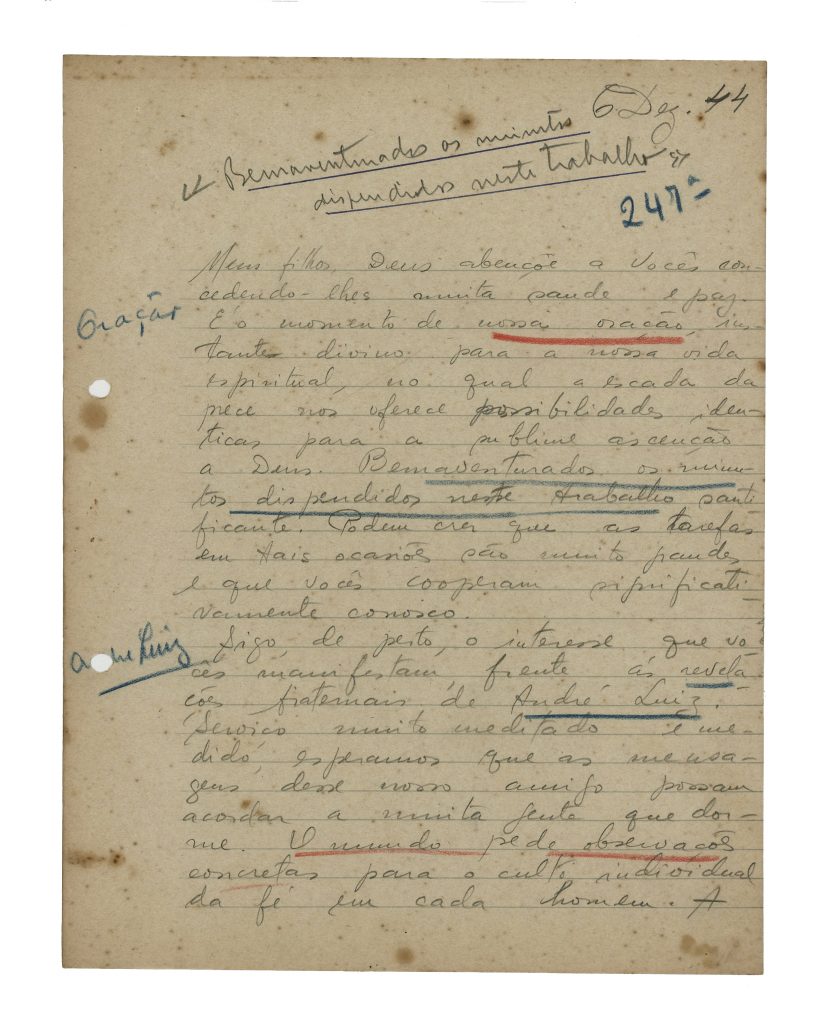 6 Dez. 44
Bemaventurados os minutos
dispendidos neste trabalho
247ª
Meus filhos, Deus abençõe a vocês con-
cedendo-lhes muita saude e paz.
Oração
E' o momento de nossa oração, ins-
tante divino, para a nossa vida
espiritual, no qual a escada da
prece nos oferece possibilidades iden-
ticas para a sublime ascenção
a Deus. Bemaventurados os minu-
tos dispendidos neste trabalho santi
ficante. Podem crer que as tarefas
em tais ocasiões são muito grandes
e que vocês cooperam significati-
vamente conosco.
André Luiz
Sigo, de perto, o interesse que vo
cês manifestam, frente ás revela-
ções fraternais de André Luiz.
Serviço muito meditado e me-
dido, esperamos que as mensa-
gens desse nosso amigo possam
acordar a muita gente que dor-
me. O mundo pede observações
concretas para o culto individual
da fé em cada homem. A